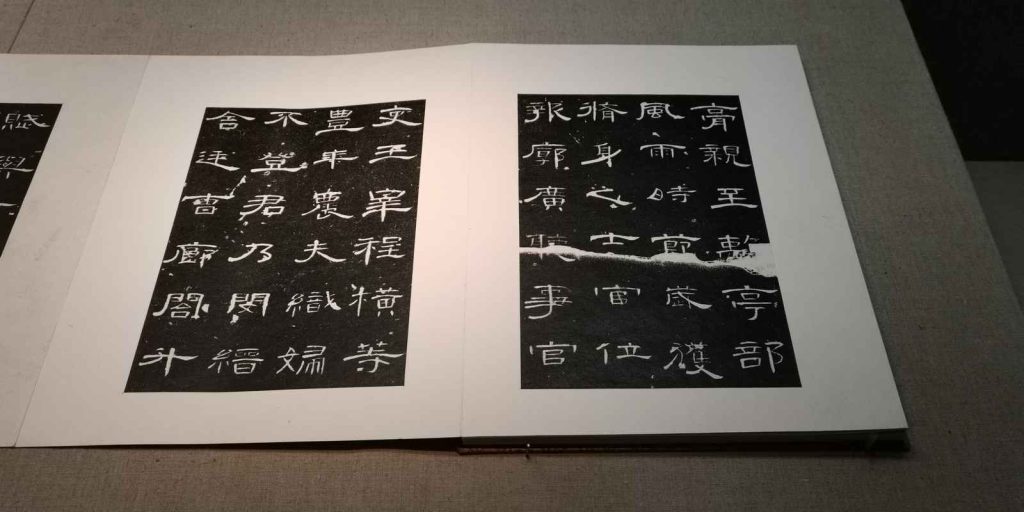 膏親至離亭部
風雨時節歲獲
脩身之士官位
報廓廣聽事官
吏王宰程橫等
豐年農夫織婦
不登君乃閔縉
舍廷曹廊閣升
賦與